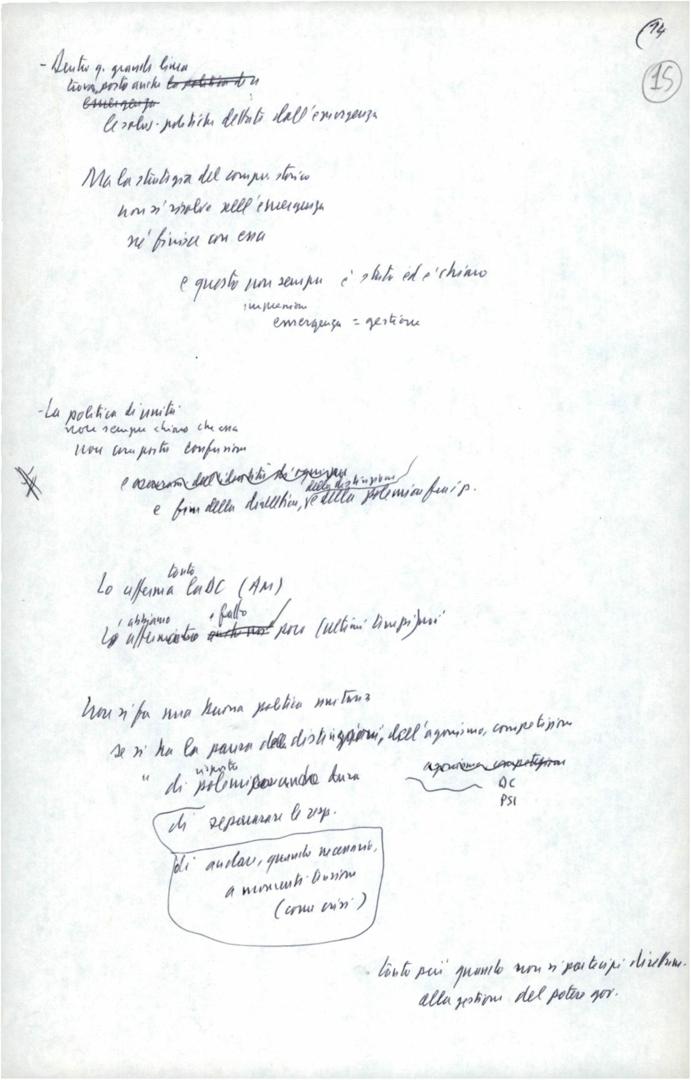 14
15
- Dentro q. grande linea
trova posto anche la politica di u
emergenza
le soluz. politiche dettate dall'emergenza
Ma la strategia del compr. storico
non si risolve nell'emergenza
né finisce con essa
e questo non sempre è stato ed è chiaro
emergenza = gestione
- La politica di unità
non sempre chiaro che essa
non comporta confusione
e fine della dialettica, e della polemica fra i p.
della distinzione
tanto
Lo afferma la DC (AM)
abbiamo fatto
poco (ultimi tempi) noi
Non si fa una buona politica unitaria
se si ha la paura delle distinzioni, dell'agonismo, competizione
" di risposta polemica anche dura
agonismo competizione
DC
PSI
di separare le resp.
di andare, quando necessario,
a momenti tensione
(come crisi)
tanto più quando non si partecipi direttam.
alla gestione del potere gov.